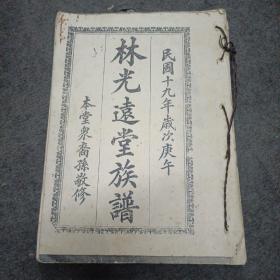 民國十九年歲次庚午
林光遠堂族譜
本堂衆裔孫敬修